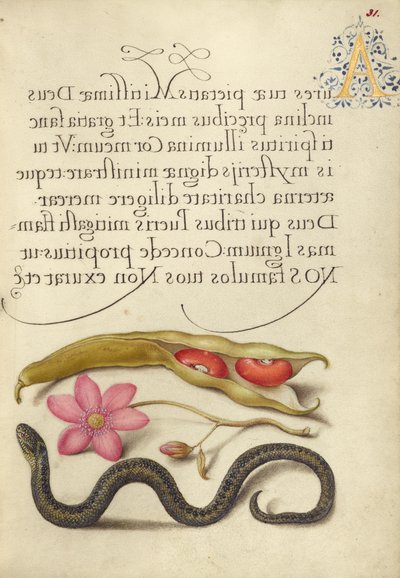 31.
A
ures tuæ pietatis Mitissimæ Deus
inclina precibus meis: Et gratia sanc
ti spiritus illumina Cor meum: Vt tu
is mysterijs dignæ ministrare: teque
æterna charitate diligere merear.
Deus qui tribus Pueris mitigasti flam
mas Ignium: Concede propitius: ut
NOS famulos tuos Non exurat etc